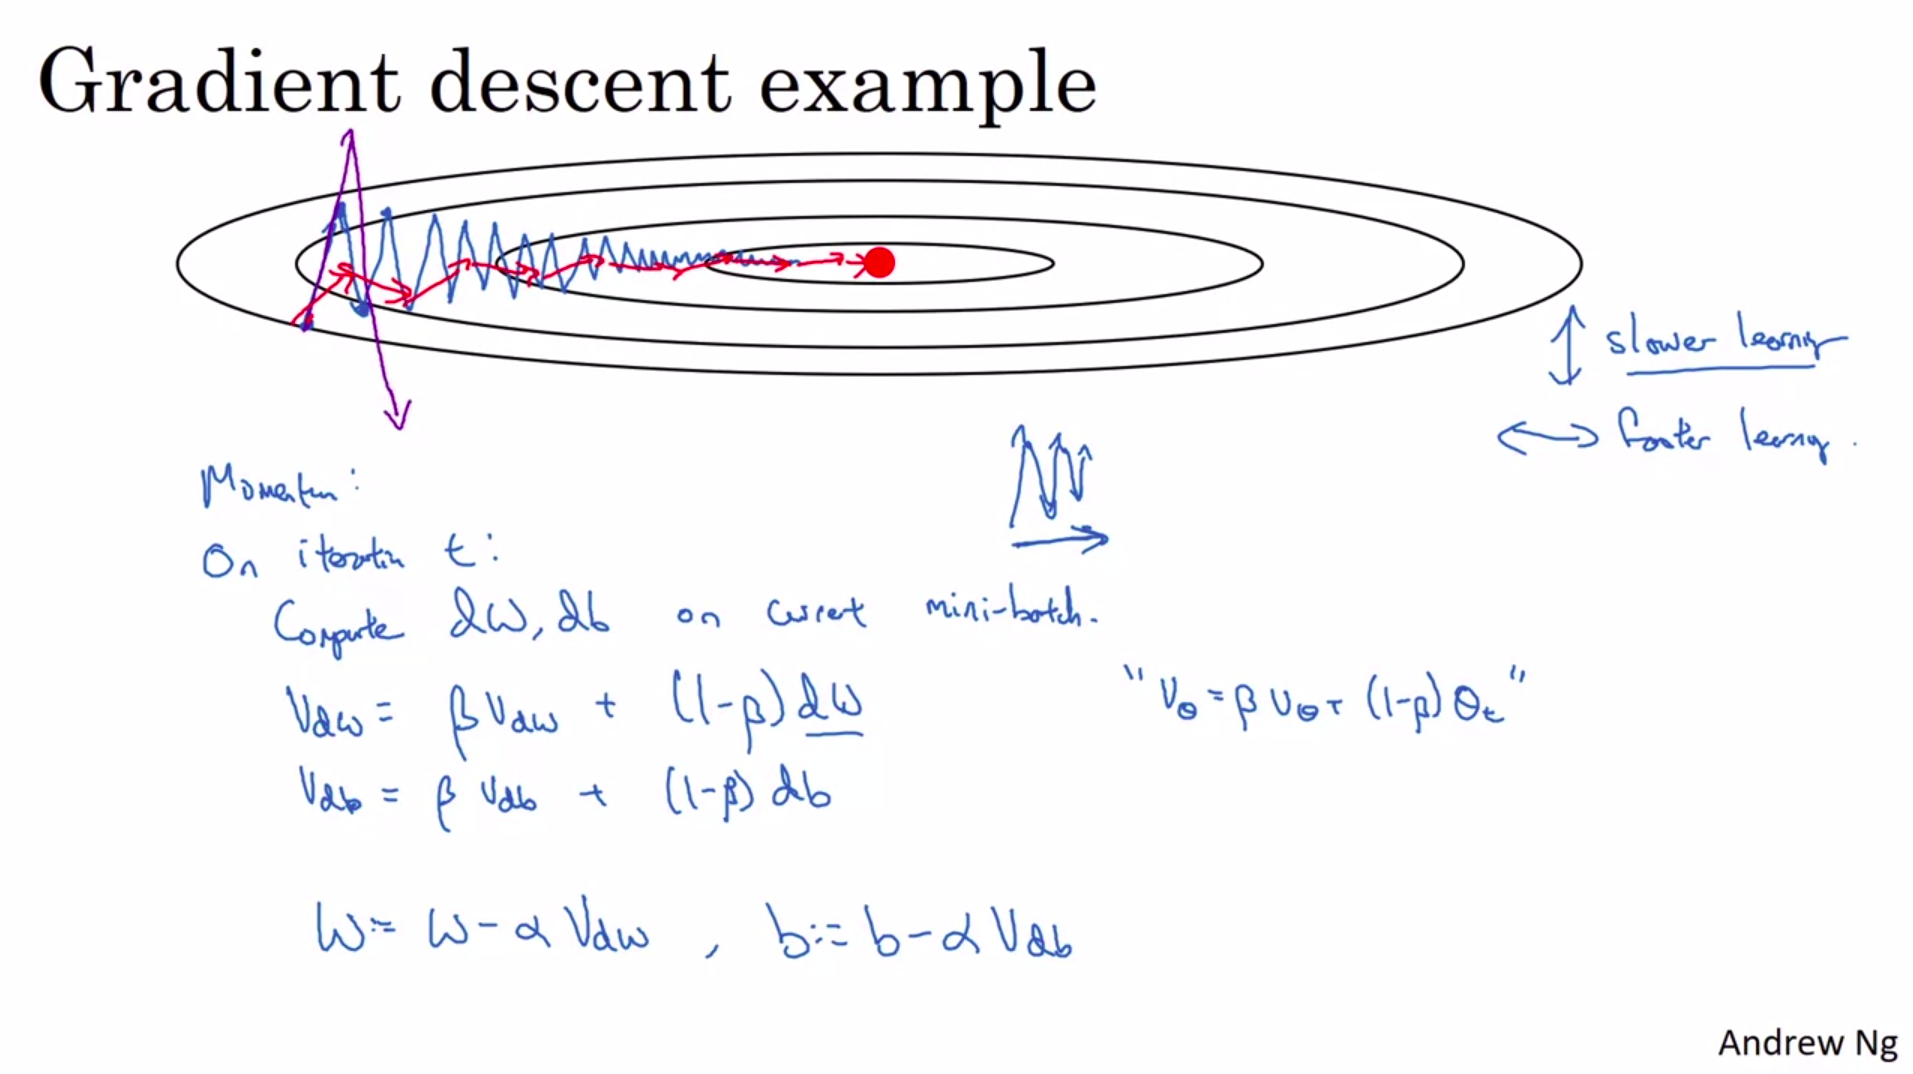 Gradient descent example
slower learning
faster learning.
Momentum:
On iteration t:
Compute dW, db on current mini-batch.
V_dw = β V_dw + (1-β) dW
"V_θ = β V_θ + (1-β) θ_t"
V_db = β V_db + (1-β) db
W := W - α V_dw , b := b - α V_db
Andrew Ng